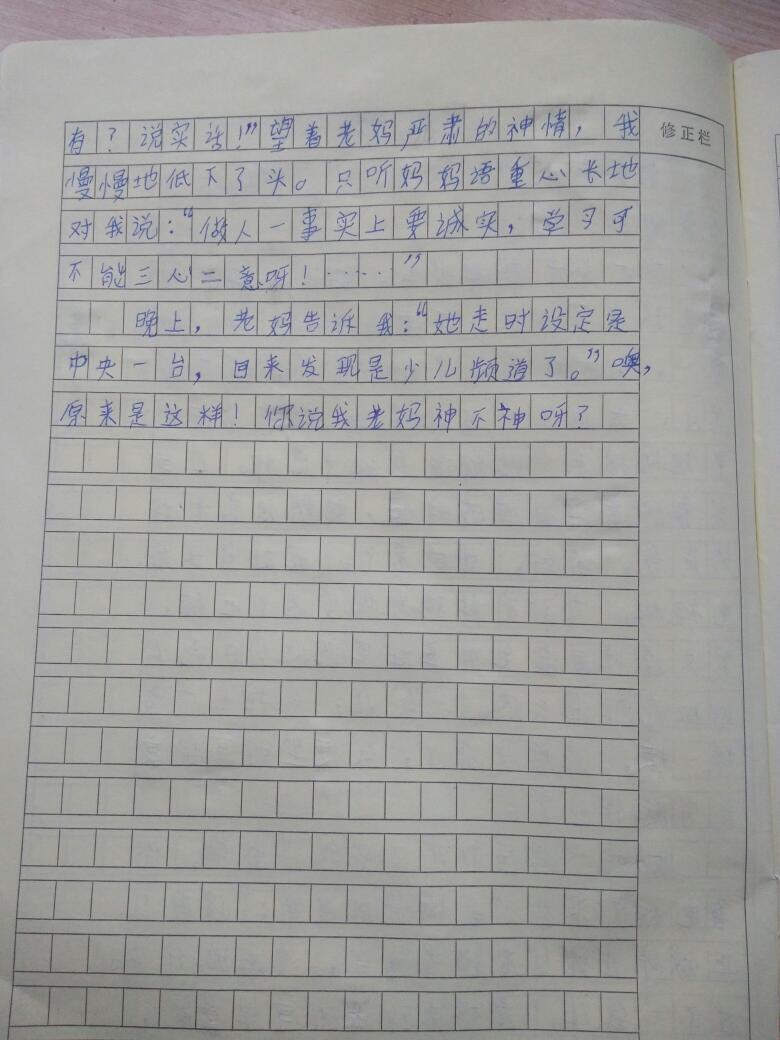 有？说实话！”望着老妈严肃的神情，我
修正栏
慢慢地低下了头。只听妈妈语重心长地
对我说：“做人一事实上要诚实，学习可
不能三心二意呀！……”
晚上，老妈告诉我：“她走时设定是
中央一台，回来发现是少儿频道了。”噢，
原来是这样！你说我老妈神不神呀？